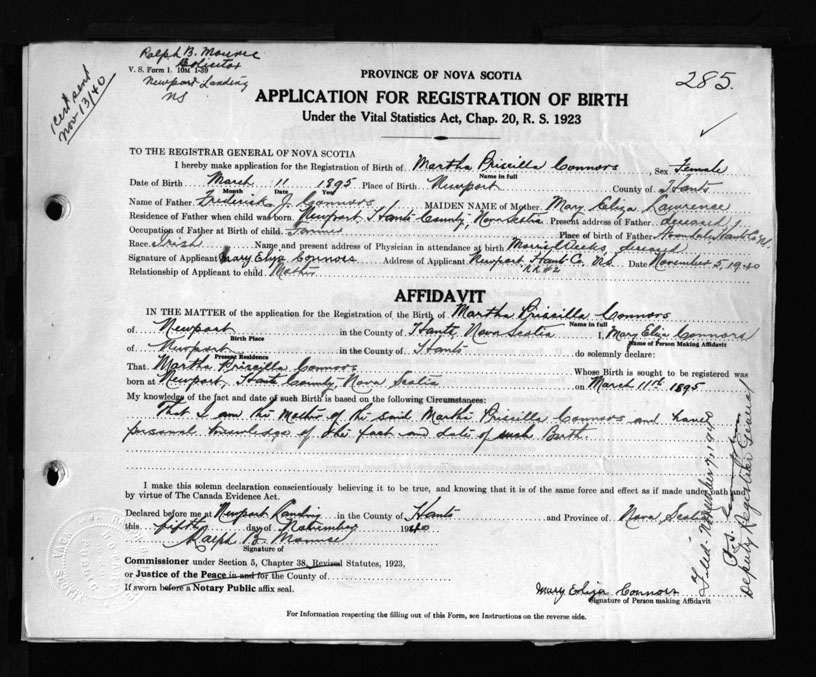 Ralph B. Monroe
Solicitor
V. S. Form 1. 10M 1-39
Newport Landing
NS
1 cert sent
Nov 13/40
285.
PROVINCE OF NOVA SCOTIA
APPLICATION FOR REGISTRATION OF BIRTH
Under the Vital Statistics Act, Chap. 20, R. S. 1923
TO THE REGISTRAR GENERAL OF NOVA SCOTIA
I hereby make application for the Registration of Birth of Martha Priscilla Connors Sex Female
Name in full
Date of Birth March 11 1895 Place of Birth Newport County of Hants
Month Date Year
Name of Father Frederick J. Connors MAIDEN NAME of Mother Mary Eliza Lawrence
Residence of Father when child was born Newport Hants County, Nova Scotia Present address of Father deceased
Occupation of Father at Birth of child Farmer Place of birth of Father Hants Co NS
Race Irish Name and present address of Physician in attendance at birth Morris Weeks, deceased
Signature of Applicant Mary Eliza Connors Address of Applicant Newport Hants Co. NS Date November 5, 1940
RR #2
Relationship of Applicant to child Mother
AFFIDAVIT
IN THE MATTER of the application for the Registration of the Birth of Martha Priscilla Connors
Name in full
of Newport in the County of Hants Nova Scotia I, Mary Eliza Connors
Birth Place Name of Person Making Affidavit
of Newport in the County of Hants do solemnly declare:
Present Residence
That Martha Priscilla Connors Whose Birth is sought to be registered was
born at Newport, Hants County, Nova Scotia on March 11th 1895
My knowledge of the fact and date of such Birth is based on the following Circumstances:
That I am the Mother of the said Martha Priscilla Connors and have
personal knowledge of the fact and date of such Birth.
I make this solemn declaration conscientiously believing it to be true, and knowing that it is of the same force and effect as if made under oath and
by virtue of The Canada Evidence Act.
Declared before me at Newport Landing in the County of Hants and Province of Nova Scotia
this fifth day of November 1940
Ralph B. Monroe
Signature of
Commissioner under Section 5, Chapter 38, Revised Statutes, 1923,
or Justice of the Peace in and for the County of
If sworn before a Notary Public affix seal.
Mary Eliza Connors
Signature of Person making Affidavit
For Information respecting the filling out of this Form, see Instructions on the reverse side.
Filed November 7, 1940
Deputy Registrar General